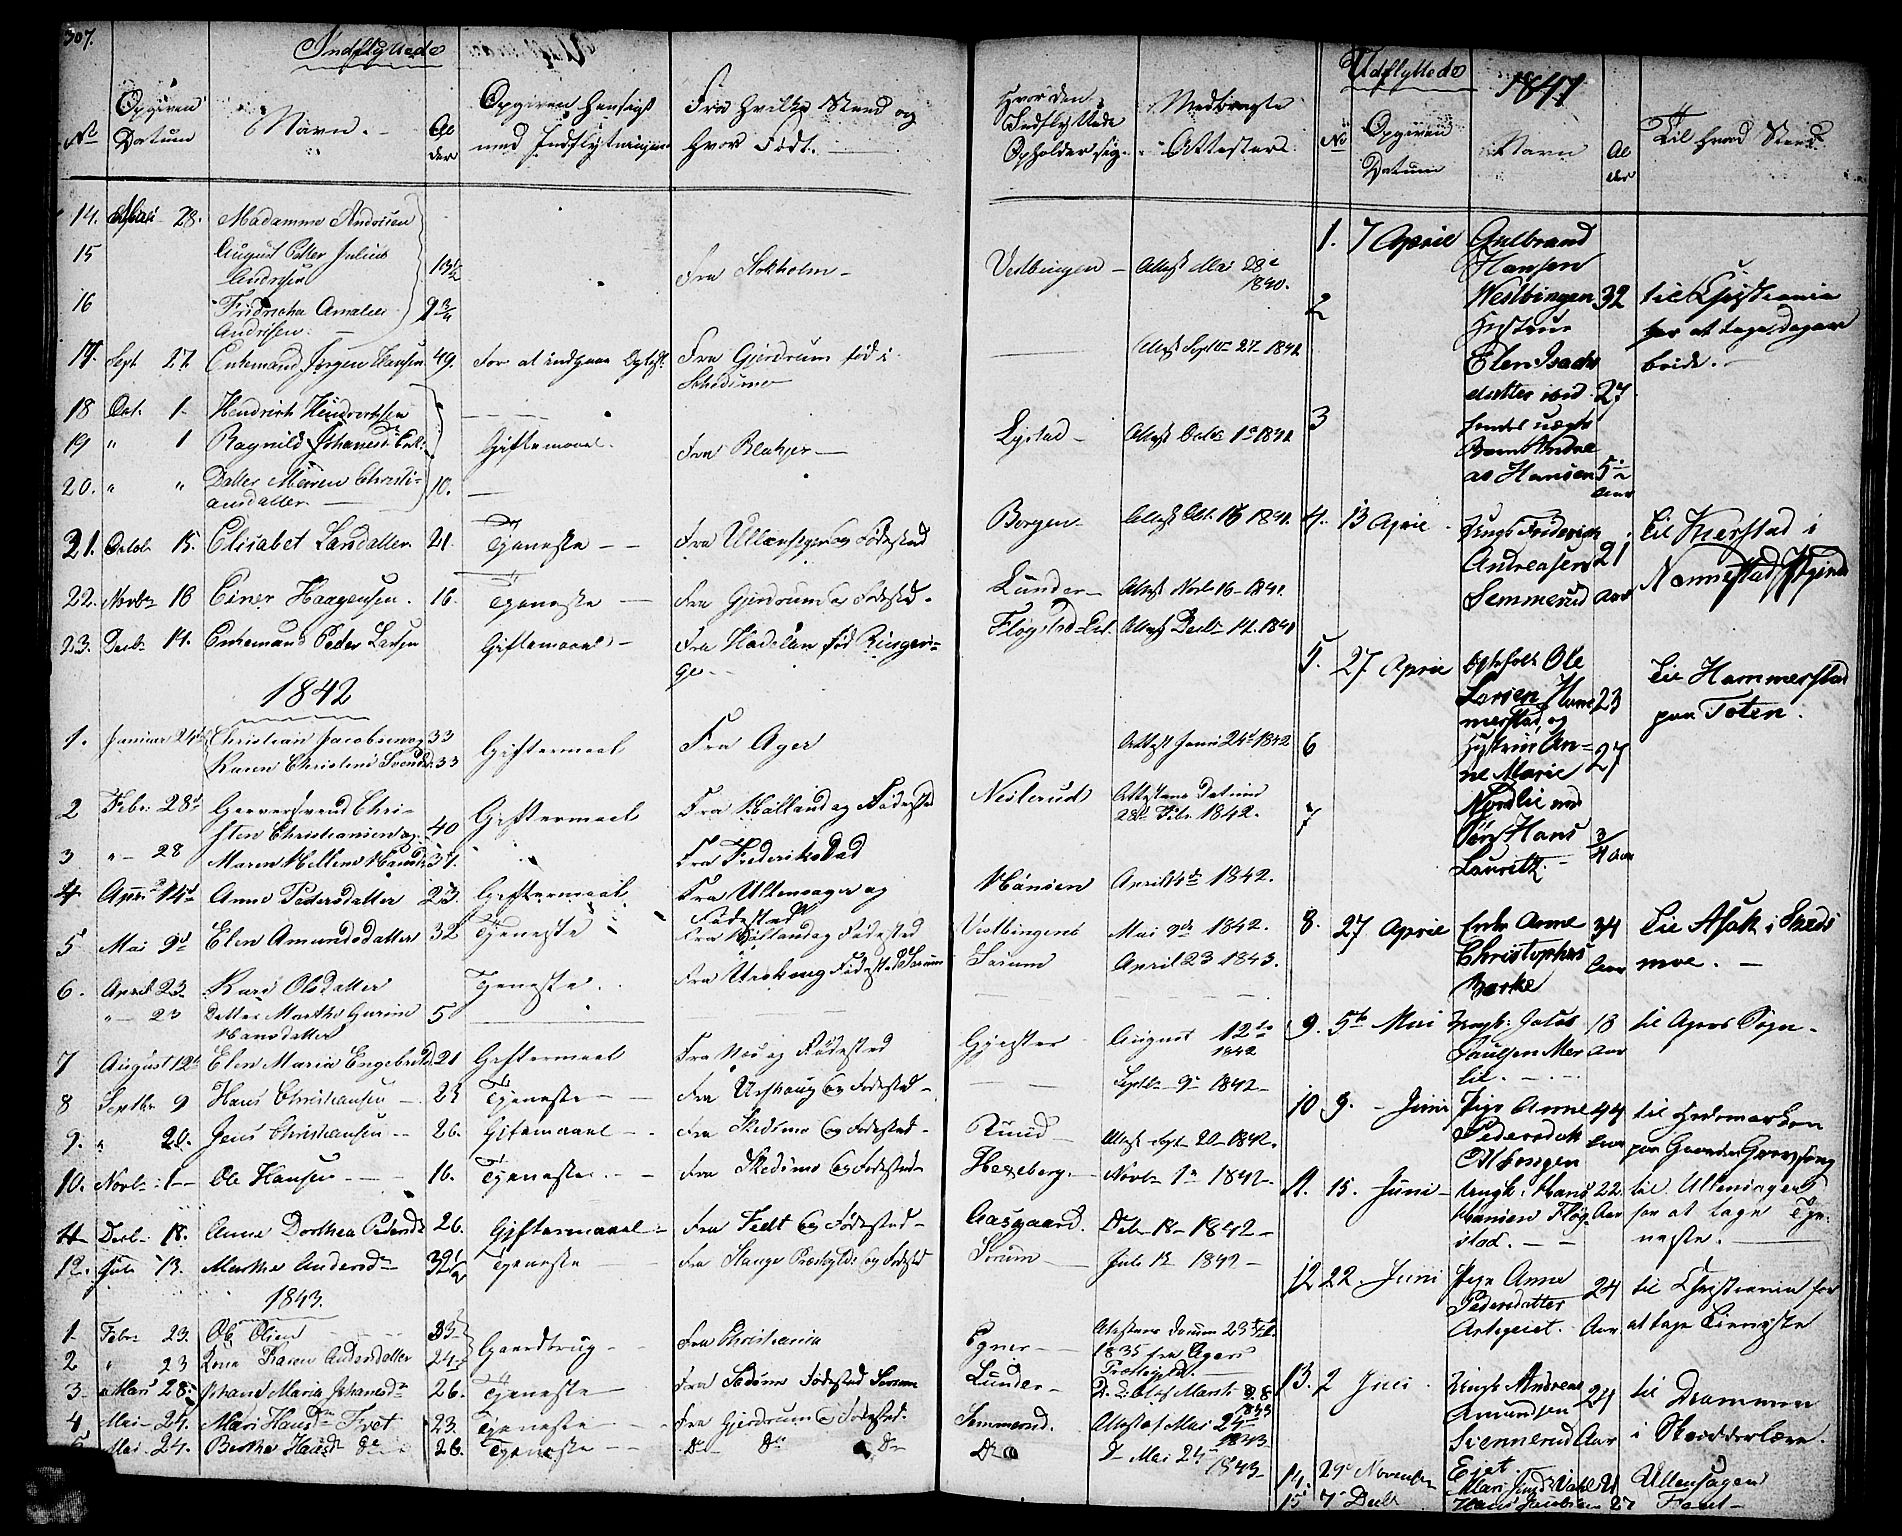 307.
Indflyttede
No
Opgiven Datum
Navn.
Al der
Opgiven Hensigt med Indflytningen
Fra hvilke Sted og hvor Født.
Hvor den Indflyttede Opholder sig.
Medbragte Attester.
14. Mai 28. Madamme Andersen
15 August Petter Julius Andersen 13½ Fra Stokholm - Vestbingen - Attest Mai 28de 1840.
16 Fridricha Amalie Andersen. 9¾
17. Sept 27 Enkemand Jørgen Hansen 49. For at indgaae Egtesk. Fra Gjerdrum fød i Schedsmo Attest Septbr 27 1841
18 Oct. 1. Hendrich Hendrichsen
19 " 1 Ragnild Johanesd Giftemaal. Fra Blakjer - Lystad - Attest Octbr 1te 1841
20. " " Datter Maren Christiansdatter 10.
21. Octob 15. Elisabet Larsdatter 21. Tjeneste - - Fra Ullensager og Fødested Borgen - Attest Oct. 15 1841.
22. Novbr 16 Einer Haagensen. 16. Tjeneste - Fra Gjerdrum og Fødested. Lunder - Attest Novbr 16 - 1841.
23. Decbr 14. Enkemand Peder Larsen Giftemaal - Fra Hadeland fød Ringerige. - Fløgstad Attest Decbr 14. 1841
1842
1. Januar 24de Christian Jacobsen og 33
Karen Christine Svendsd. 33 Giftermaal Fra Ager Attest Janr 24de 1842
2 Febr. 28de Christen Christiansen og 40 Giftermaal Fra Høland og Fødested Neslerud Attestens Datum 28de Febr. 1842.
3 " - 28 Maren Helene 37. Fra Frederikstad
4 April 14de Anne Pedersdatter 23. Giftermaal Fra Ullensager og Fødested Hansien April 14de 1842.
5 Mai 9de Elen Amundsdatter 32 Tjeneste Fra Høland og Fødested Vestbingens Mai 9de 1842.
6. April 23 Kari Olsdatter Tjeneste. Fra Urskoug Fødested Sørum Sørum April 23 1843.
" - 23 Datter Marthe Gurine Hansdatter 5
7 August 12te Elen Maria Engebretsd. 21 Giftermaal Fra Næs og Fødested Gjester August 12te 1842
8 Septbr 9 Hans Christiansen - 23 Tjeneste - Fra Urskoug og Fødested - Septbr 9de 1842 -
9. " 20. Jens Christiansen - - 26. Giftemaal - - Fra Skedsmo og Fødested - Ruud - Attest Sept 20 - 1842.
10. Novbr 1 - Ole Hansen - - - 16. Tjeneste - - Fra Skedsmo og Fødested - Hexeberg. - Novbr 1te 1842 -
11 Decbr 18. Anne Dorthea Pedersd 26. Giftermaal - Fra Fedt og Fødested - Aasgaard. Decbr 18 - 1842 -
12. Juli 13. Marthe Andersdr 32½ Tjeneste - Fra Stange Præstgjeld og Fødested Sørum - Juli 13 1842 -
1843.
1. Febr 23. Ole Olsen 33 Gaardbrug - - Fra Christiania Egner - Attestens Datum 23de Febr. 1835 fra Agers Præstegjeld.
2 " 23 Kone Karen Andersdatter 24
3 - Mars 28. Johane Maria Johanesdr 26. Tjeneste - Fra Skedsmo Fødested Sørum Lunder - D. D. Attest af Marts 28. 1843
4 Mai - 24. Mari Hansdr Frøt 23. Tjeneste - - Fra Gjerdrum og Fødested. Semmerud. Attest af Mai 24de 1843
5 Mai - 24. Berthe Hansdr do 26. Tjeneste - - Do Do Do Do D. Mai 24 1843 -
Udflyttede
1841
No
Opgiven Datum
Navn
Al der
Til hvad Sted.
1. 7 April Gulbrand Hansen Westbingen 32 til Christiania for at tage Dagar beide. -
2 Hustrue Elen Isachs datter ibid. 27
3 samt uægte Barn Andre as Hansen 5½ Aar
4. 13 April. Ungk Friderich Andreasen Semmerud 21 Aar til Kierstad i Nannestad
5. 27 April Egtefolk Ole Larsen Hammerstad og 23 til Hammerstad paa Toten.
6 Hustrue Anne Marie Nordlie med 27
7 Søn Hans Lauritz. - ¾ Aar
8. 27 April Enke Anne Christophers Borke 34 Aar til Asak i Skedsmoe. -
9. 5te Mai Ungk: Jacob Paulsen Mer lie. - 18 Aar til Agers Sogn -
10 9. - Juni Pige Anne Pedersdatt 44 Aar til Hedemarken paa Gaarden
11. 15. Juni - Ungk: Hans Hansen Fløgstad. - - 22. Aar til Ullensager for at tage Tjeneste. -
12 22. Juni Pige Anne Pedersdatter 24 Aar til Christiania for at tage Tieneste
13. 2 Juli. Ungk Andreas Amundsen Siennerud Ejet. 24 Aar til Drammen i Skredderlære.
14. 29de November Mari 21 Ullensager
15 7de Decbr Hans Jacobsen 27 Feet -